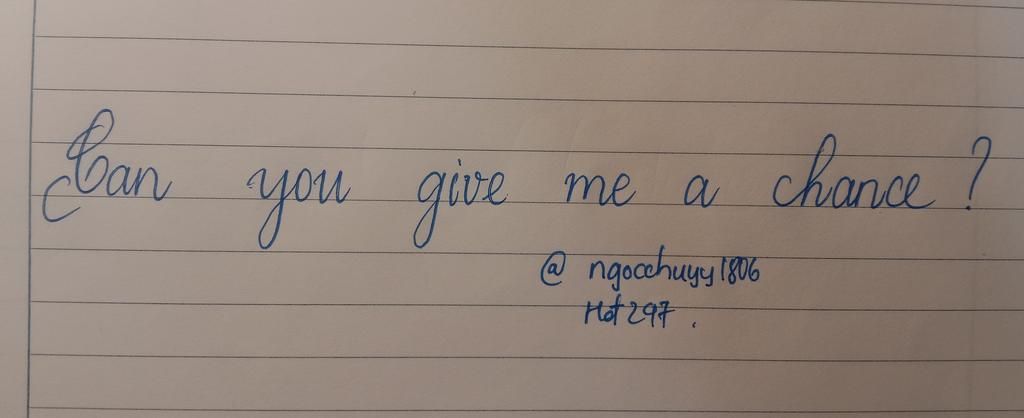 Can you give me a chance?
@ngocchuyy1806
Hot297.